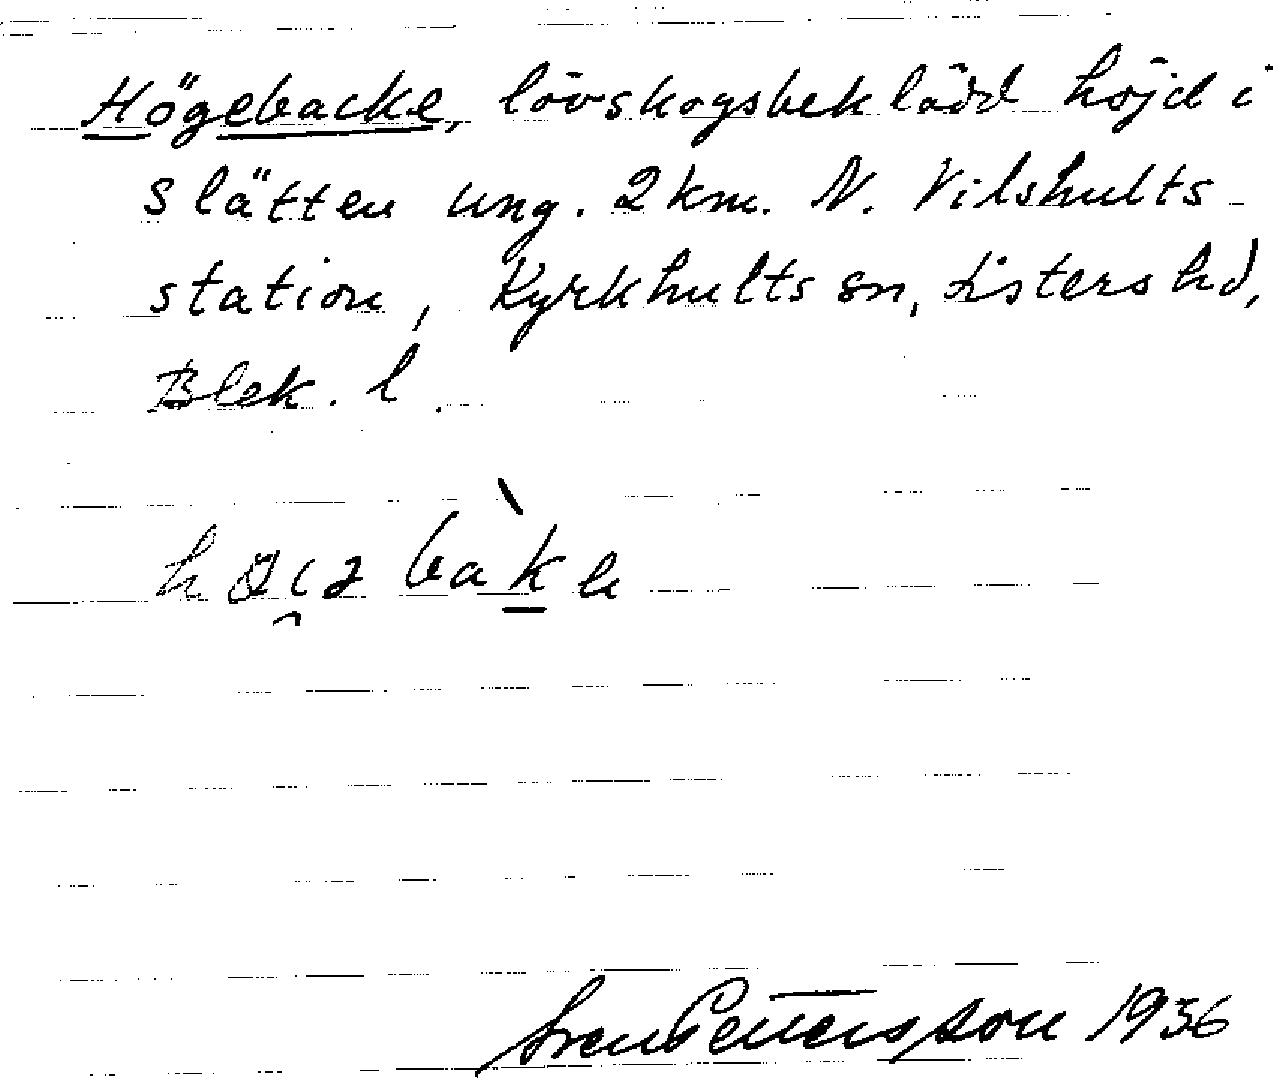 Högebacke, lövskogsbeklädd höjd i
slätten ung. 2 km. N. Vilshults
station, Kyrkhults sn, Listers hd,
Blek. l.
Sven Pettersson 1936